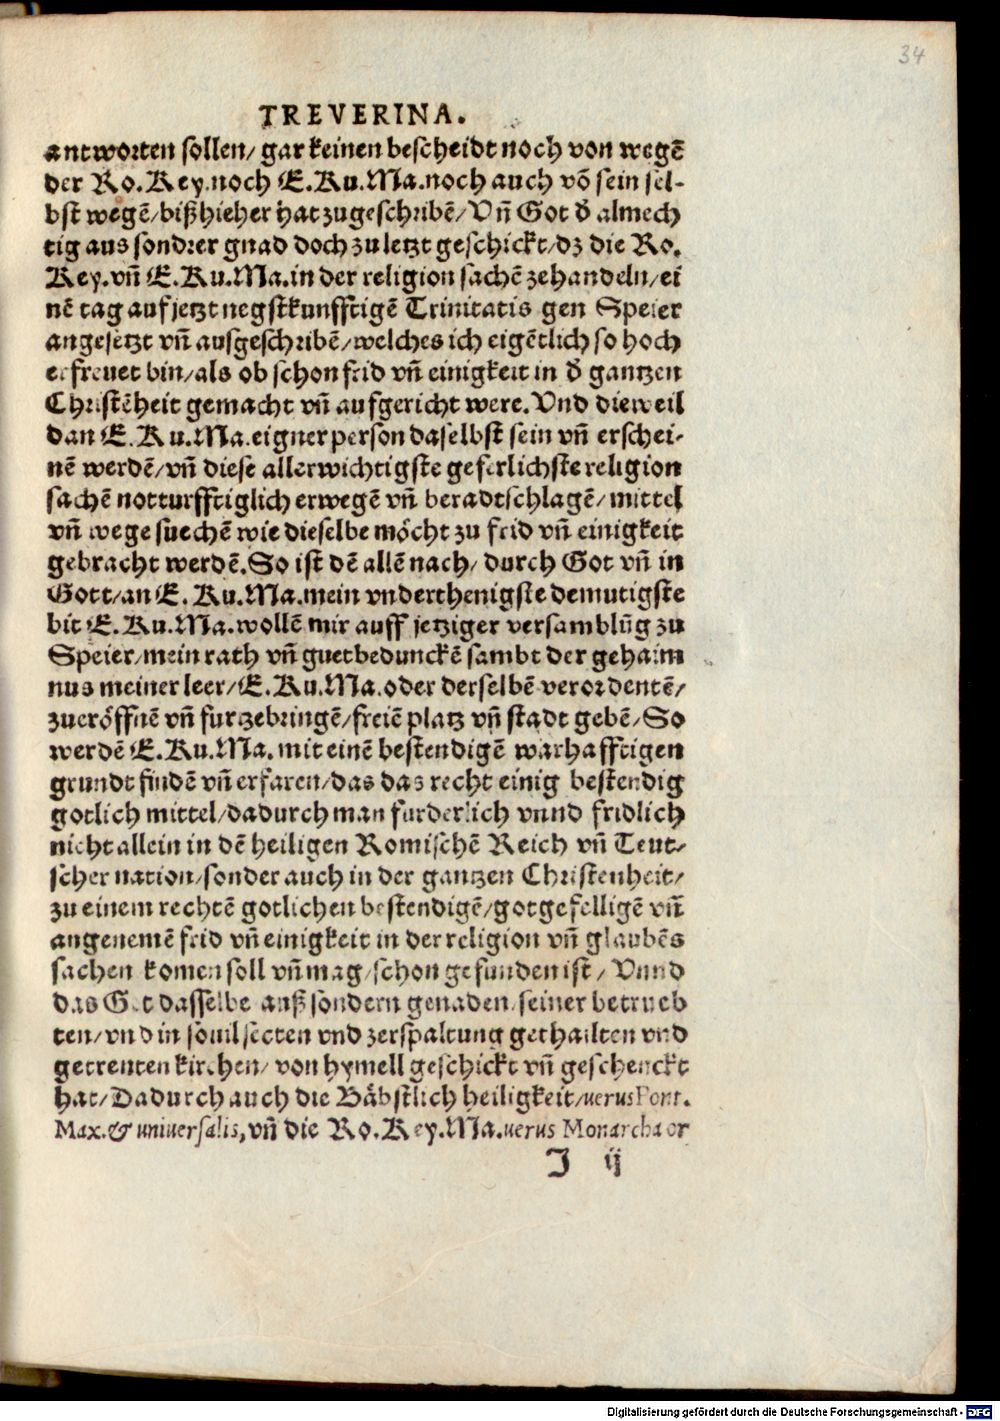 34
TREVERINA.
antworten sollen/ gar keinen bescheidt noch von wegẽ
der Ro. Key. noch E. Ku. Ma. noch auch võ sein sel-
bst wegẽ/ biß hieher hat zugeschribẽ/ Vñ Got đ almech
tig aus sondrer gnad doch zu letzt geschickt/ dz die Ro.
Key. vñ E. Ku. Ma. in der religion sachẽ zehandeln/ ei
nẽ tag auf jetzt negstkunfftigẽ Trinitatis gen Speier
angesetzt vñ ausgeschribẽ/ welches ich eigẽtlich so hoch
erfreuet bin/ als ob schon frid vñ einigkeit in đ gantzen
Christẽheit gemacht vñ aufgericht were. Vnd dieweil
dan E. Ku. Ma. eigner person daselbst sein vñ erschei-
nẽ werdẽ/ vñ diese allerwichtigste geferlichste religion
sachẽ notturfftiglich erwegẽ vñ beradtschlagẽ/ mittel
vñ wege suechẽ wie dieselbe möcht zu frid vñ einigkeit
gebracht werdẽ. So ist dẽ allẽ nach/ durch Got vñ in
Gott/ an E. Ku. Ma. mein vnderthenigste demutigste
bit E. Ku. Ma. wollẽ mir auff jetziger versamblũg zu
Speier/ mein rath vñ guetbedunckẽ sambt der gehaim
nus meiner leer/ E. Ku. Ma. oder derselbẽ verordentẽ/
zueröffnẽ vñ furzebringẽ/ freiẽ platz vñ stadt gebẽ/ So
werdẽ E. Ku. Ma. mit einẽ bestendigẽ warhafftigen
grundt findẽ vñ erfaren/ das das recht einig bestendig
gotlich mittel/ dadurch man furderlich vnnd fridlich
nicht allein in dẽ heiligen Romischẽ Reich vñ Teut-
scher nation/ sonder auch in der gantzen Christenheit/
zu einem rechtẽ gotlichen bestendigẽ/ gotgefelligẽ vñ
angenemẽ frid vñ einigkeit in der religion vñ glaubẽs
sachen komen soll vñ mag/ schon gefunden ist/ Vnnd
das Got dasselbe auß sondern genaden seiner betrueb
ten/ vnd in souil secten vnd zerspaltung gethailten vnd
getrenten kirchen/ von hymell geschickt vñ geschenckt
hat/ Dadurch auch die Bäbstlich heiligkeit/ verus Pont.
Max. & vniuersalis, vñ die Ro. Key. Ma. verus Monarcha or
J ij
Digitalisierung gefördert durch die Deutsche Forschungsgemeinschaft - DFG